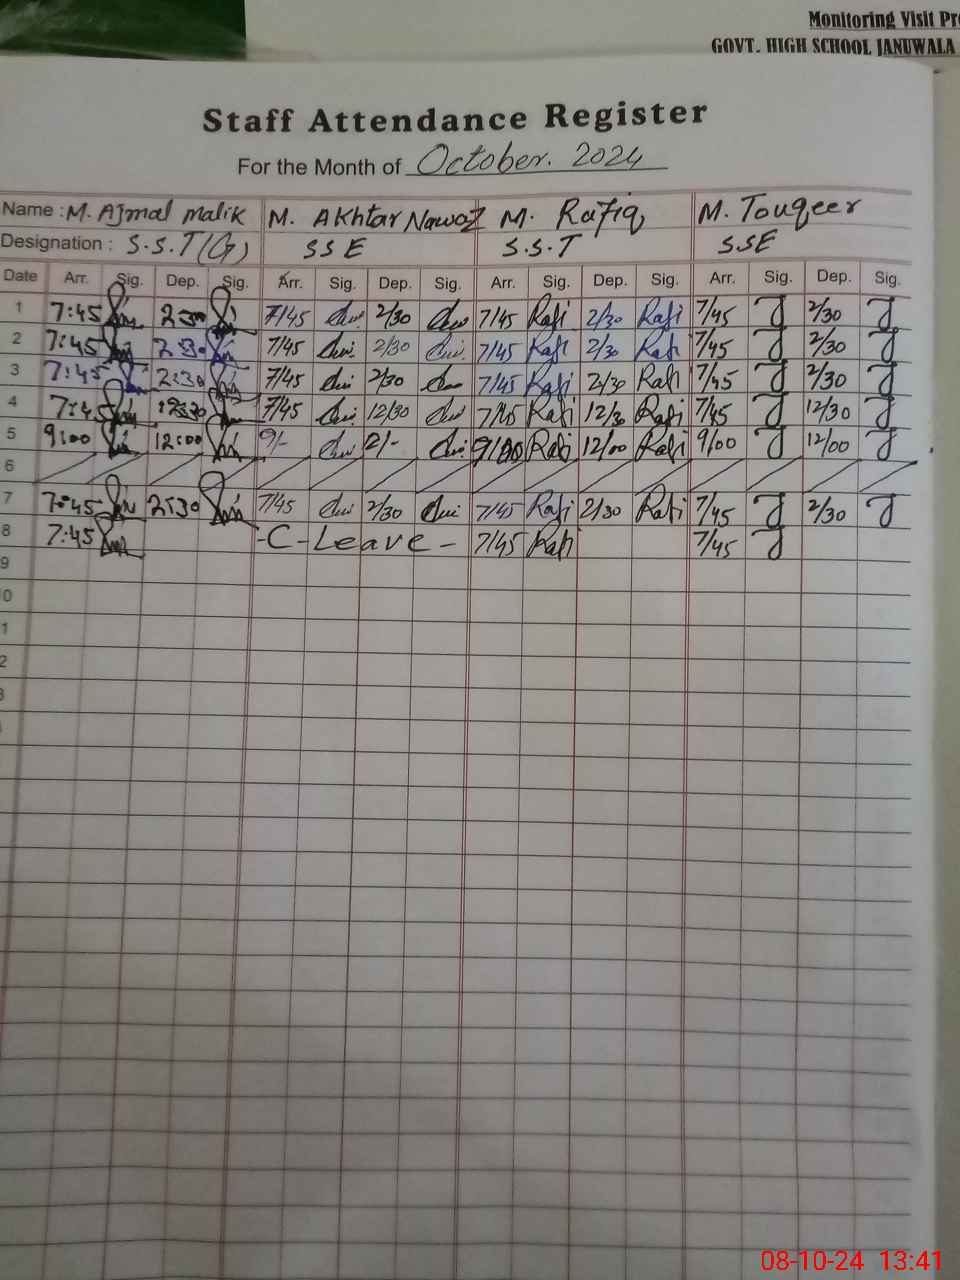 Monitoring Visit Pr
GOVT. HIGH SCHOOL JANUWALA
Staff Attendance Register
For the Month of October. 2024
Name : M. Ajmal Malik M. Akhtar Nawaz M. Rafiq M. Touqeer
Designation : S.S.T(G) SSE S.S.T SSE
Date Arr. Sig. Dep. Sig. Arr. Sig. Dep. Sig. Arr. Sig. Dep. Sig. Arr. Sig. Dep. Sig.
1 7:45 2:30 7/45 2/30 7/45 Rafi 2/30 Rafi 7/45 2/30
2 7:45 2:30 7/45 2/30 7/45 Rafi 2/30 Rafi 7/45 2/30
3 7:45 2:30 7/45 2/30 7/45 Rafi 2/30 Rafi 7/45 2/30
4 7:45 12:30 7/45 12/30 7/45 Rafi 12/30 Rafi 7/45 12/30
5 9:00 12:00 9/- Rafi 12/00 Rafi 9/00 12/00
6
7 7:45 2:30 7/45 2/30 7/45 Rafi 2/30 Rafi 7/45 2/30
8 7:45 -C-Leave- 7/45 Rafi 7/45
9
0
1
2
3
08-10-24 13:41